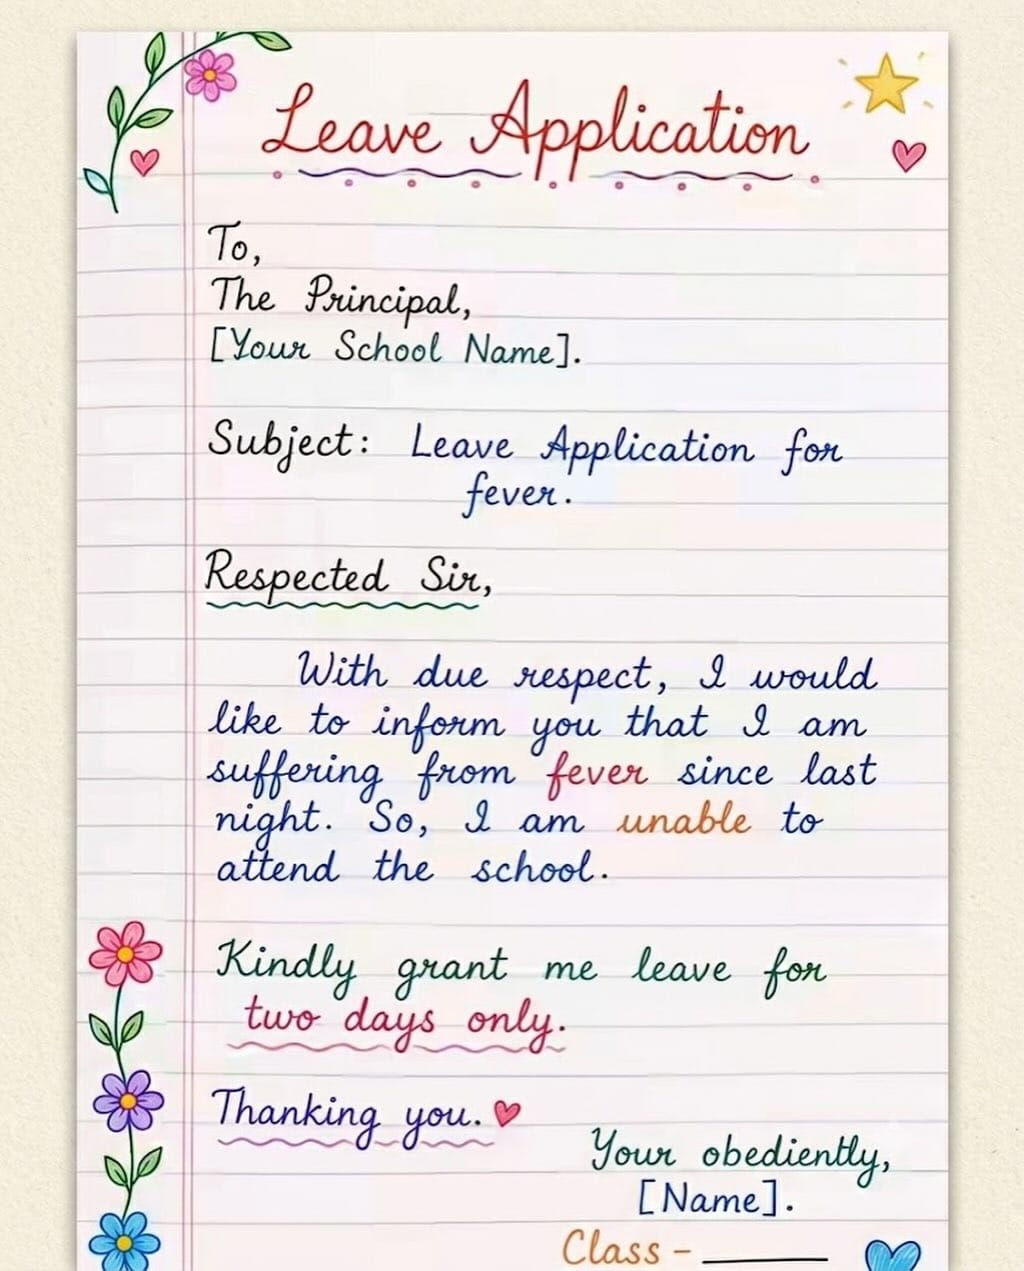 Leave Application
To,
The Principal,
[Your School Name].
Subject: Leave Application for
fever.
Respected Sir,
With due respect, I would
like to inform you that I am
suffering from fever since last
night. So, I am unable to
attend the school.
Kindly grant me leave for
two days only.
Thanking you.
Your obediently,
[Name].
Class - ______